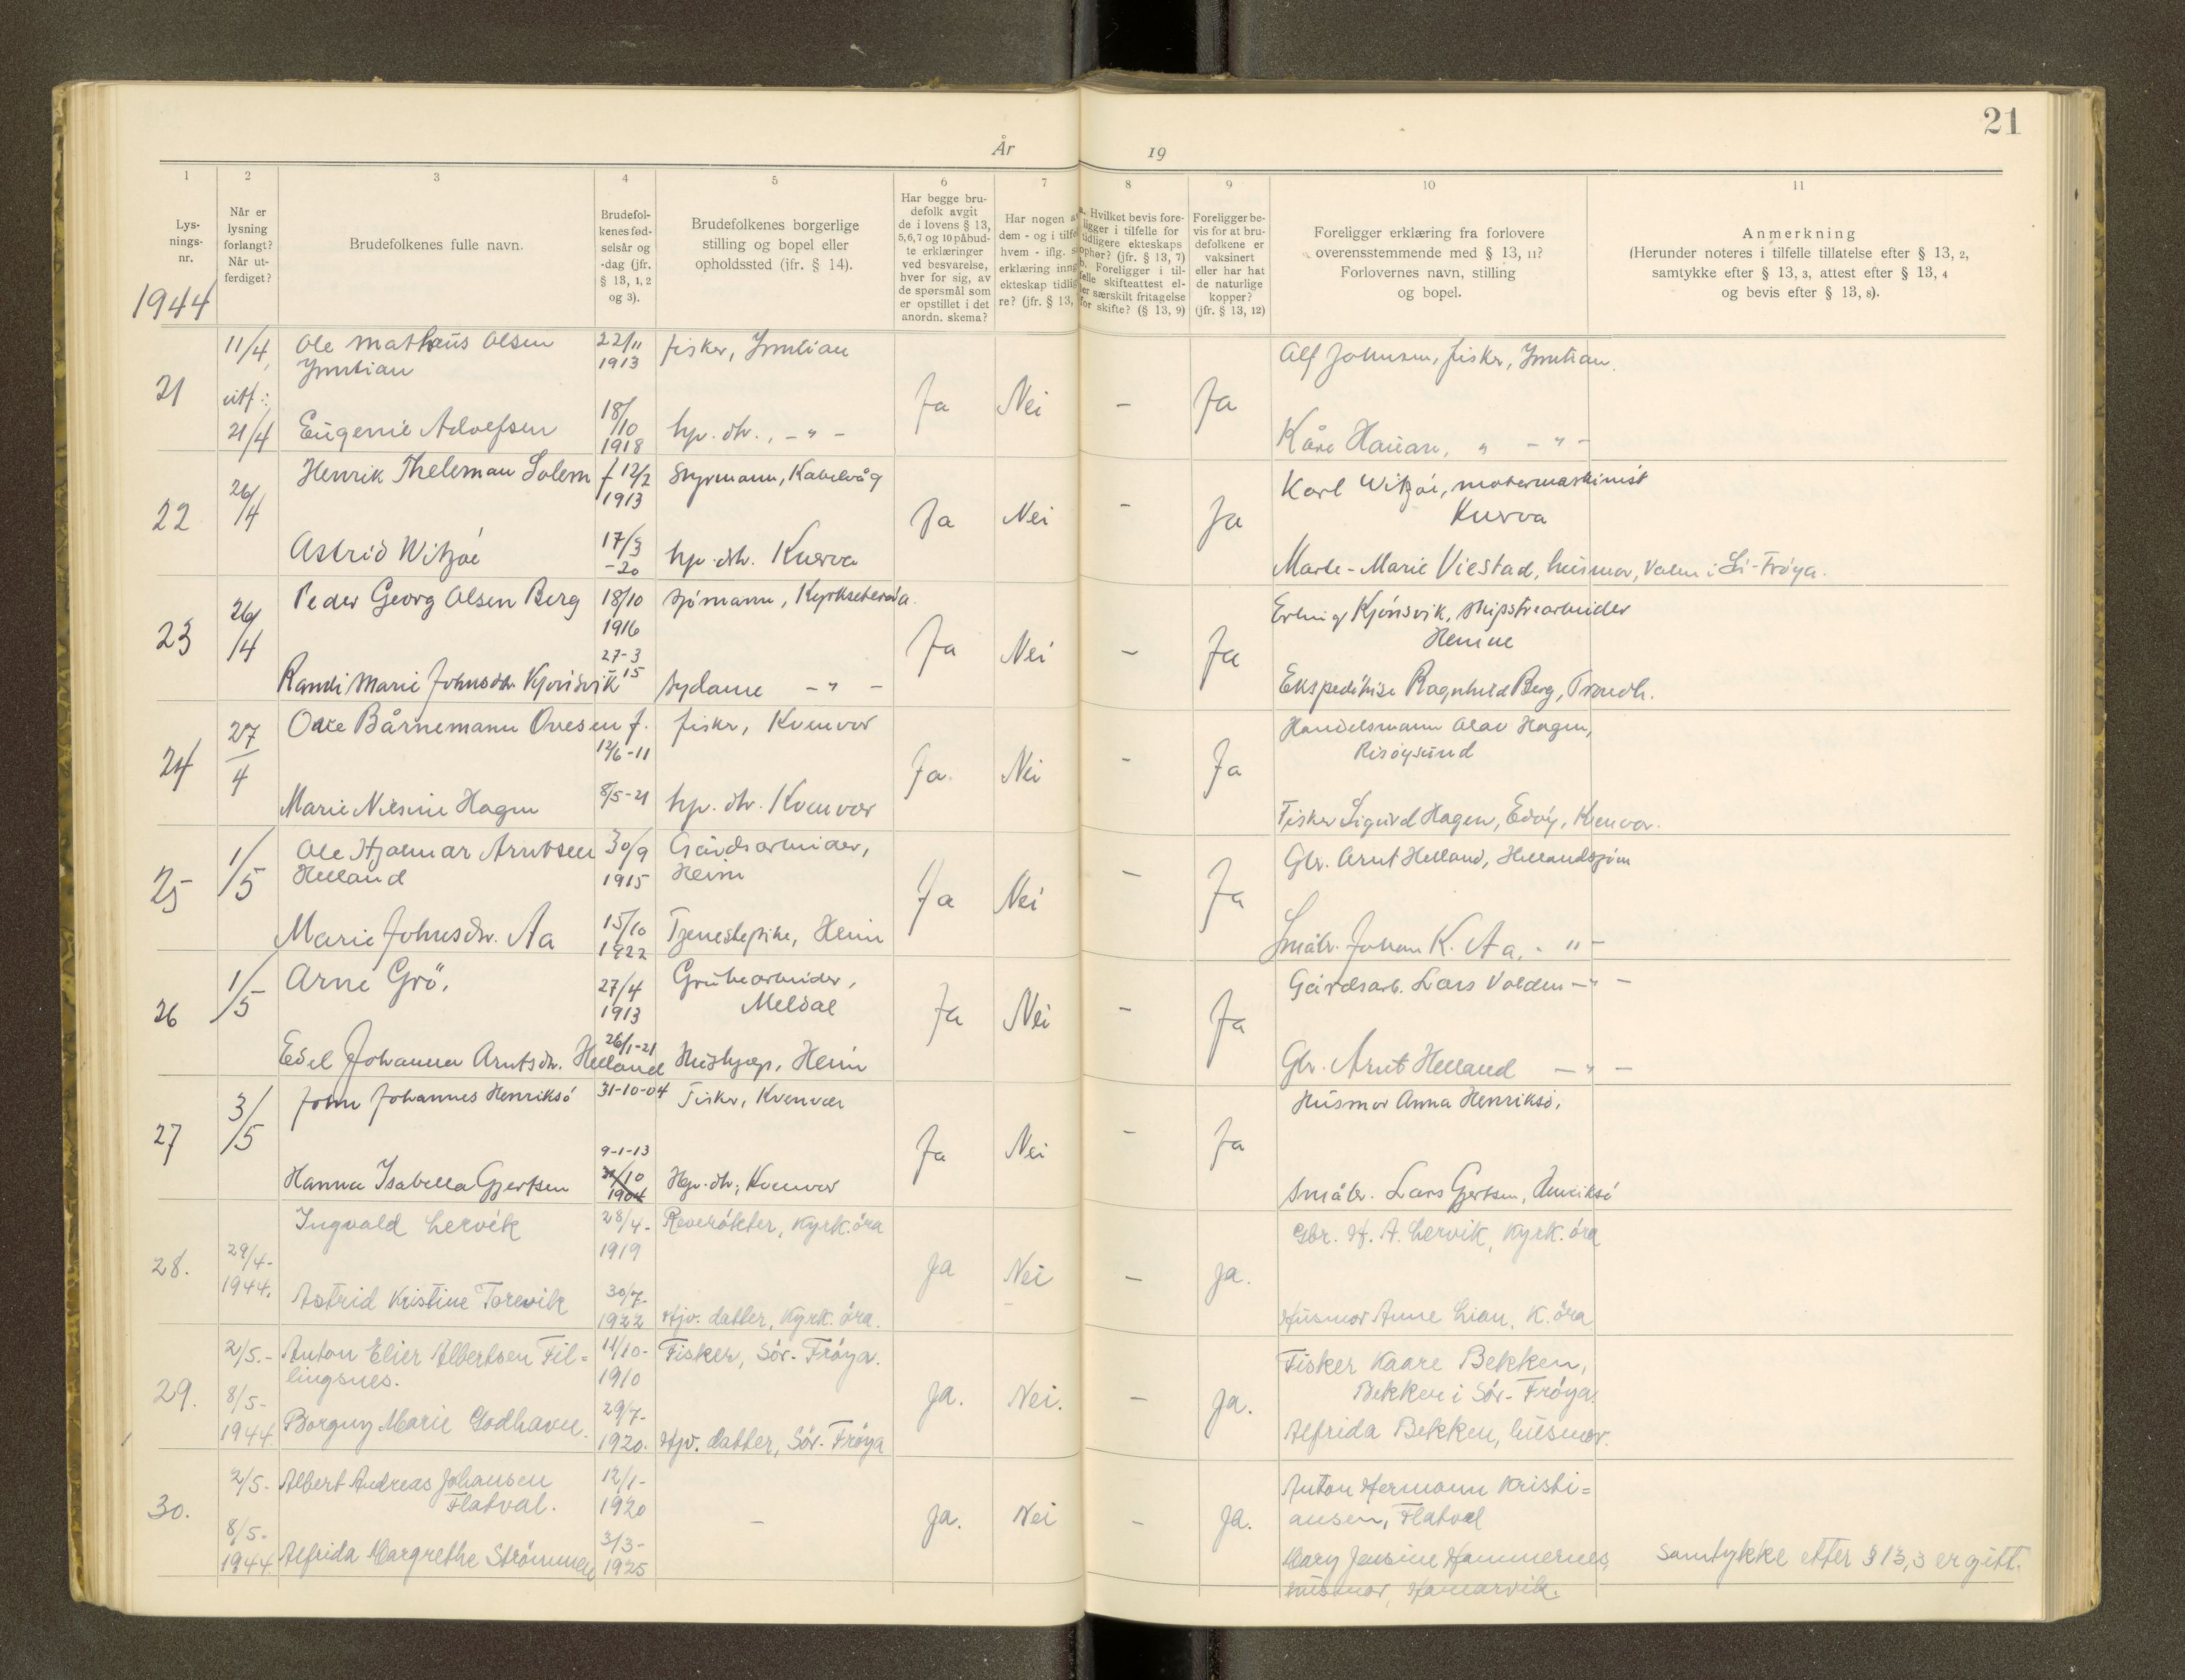 21
År 19
1
Lys-
nings-
nr.
2
Når er
lysning
forlangt?
Når ut-
ferdiget?
3
Brudefolkenes fulle navn.
4
Brudefol-
kenes fød-
selsår og
-dag (jfr.
§ 13, 1, 2
og 3).
5
Brudefolkenes borgerlige
stilling og bopel eller
opholdssted (jfr. § 14).
6
Har begge bru-
defolk avgit
de i lovens § 13,
5, 6, 7 og 10 påbud-
te erklæringer
ved besvarelse,
hver for sig, av
de spørsmål som
er opstillet i det
anordn. skema?
7
Har nogen a
dem - og i tilfe
hvem - iflg. s
erklæring inng
ekteskap tidlig
re? (jfr. § 13,
8
a. Hvilket bevis fore-
ligger i tilfelle for
tidligere ekteskaps
ophør? (jfr. § 13, 7)
b. Foreligger i til-
felle skifteattest el-
ler særskilt fritagelse
for skifte? (§ 13, 9)
9
Foreligger be-
vis for at bru-
defolkene er
vaksinert
eller har hat
de naturlige
kopper?
(jfr. § 13, 12)
10
Foreligger erklæring fra forlovere
overensstemmende med § 13, 11?
Forlovernes navn, stilling
og bopel.
11
Anmerkning
(Herunder noteres i tilfelle tillatelse efter § 13, 2,
samtykke efter § 13, 3, attest efter § 13, 4
og bevis efter § 13, 8).
1944
21
11/4,
utf.:
21/4
Ole Mathæus Olsen
22/11
1913
fisker,
Eugenie Adolfsen
18/10
1918
hp. dtr., - " -
Ja Nei - Ja
Alf Johnsen, fisker,
Kåre Hauan, " - " -
22
26/4
Henrik Theleman Solem
f 12/2
1913
Styrmann, Kabelvåg
Astrid Witzøe
17/3
-20
hp. dtr. Kuerva
Ja Nei - Ja
Karl Witzøe, motormaskinist
Kuerva
Marie Viestad, husmor, i Sø-Frøya.
23
26/4
Peder Georg Olsen Berg
18/10
1916
sjømann, Kyrksæterøra.
Randi Marie Johnsdtr. Kjønsvik
27-3
15
sydame - " -
Ja Nei - Ja
Erling Kjønsvik, skipstrearbeider
Hemne
Ekspeditrise Ragnhild Berg, Trondh.
24
27/4
Ove Bårnemann Ovesen f.
12/6-11
fisker, Kvenvær
Marie Nilsine Hagen
8/5-21
hp. dtr. Kvenvær
Ja. Nei - Ja
Handelsmann Olav Hagen,
Risøysund
Fisker Sigurd Hagen, Edøy, Kvenvær.
25
1/5
Ole Hjalmar Arntsen
Helland
30/9
1915
Gårdsarbeider,
Heim
Marie Johnsdtr. Aa
15/10
1922
Tjenestepike, Heim
Ja Nei - Ja
Gbr. Arnt Helland, Hellandsjøen
Småbr. Johan K. Aa, - " -
26
1/5
Arne Grö,
27/4
1913
Grubearbeider,
Meldal
Edel Johanna Arntsdtr. Helland
26/1-21
Hushjelp, Heim
Ja Nei - Ja
Gårdsarb. Lars Volden - " -
Gbr. Arnt Helland - " -
27
3/5
John Johannes Henriksö
31-10-04
Fisker, Kvenvær
Hanna Isabella Gjertsen
9-1-13
31/10
1904
Hp. dtr., Kvenvær
Ja Nei - Ja
Husmor Anna Henriksö,
Småbr. Lars Gjertsen, Henriksö
28.
29/4-
1944.
Ingvald Lervik
28/4-
1919
Reverøkter, Kyrk.öra
Astrid Kristine Torevik
30/7-
1922
Hjv. datter, Kyrk. öra.
Ja Nei - Ja.
Gbr. H. A. Lervik, Kyrk. öra
Husmor Anne Lian, K. öra
29.
2/5.-
8/5-
1944.
Anton Elier Albertsen Fil=
lingsnes.
11/10-
1910
Fisker, Sör-Fröya.
Borguy Marie Godhavn.
29/7-
1920.
Hjv. datter, Sör-Fröya
Ja. Nei. - Ja.
Fisker Kaare Bekken,
Bekken i Sör-Fröya.
Alfrida Bekken, husmor.
30.
2/5-
8/5-
1944.
Albert Andreas Johansen
Flatval.
12/1-
1920
-
Alfrida Margrethe Strömmen
3/3-
1925
Ja. Nei - Ja.
Anton Hermann Kristi=
ansen, Flatval
Mary Jensine Hammernes,
husmor, Hamarvik.
Samtykke etter § 13,3 er gitt.